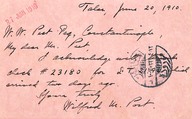 Talas, June 20, 1910.
W. W. Peet Esq, Constantinople,
My dear Mr. Peet,
I acknowledge with
check # 23180 for £T
arrived two days ago
Yours truly,
Wilfred M. Post.